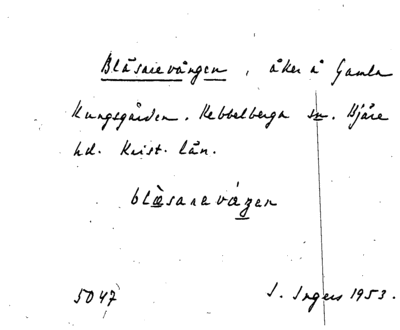 Blåsarevången, åker å Gamla
Kungsgården. Hebbelberga sn. Bjäre
hd. Krist. län.
blæ̀saneváŋen
5047 I. Ingers 1953.